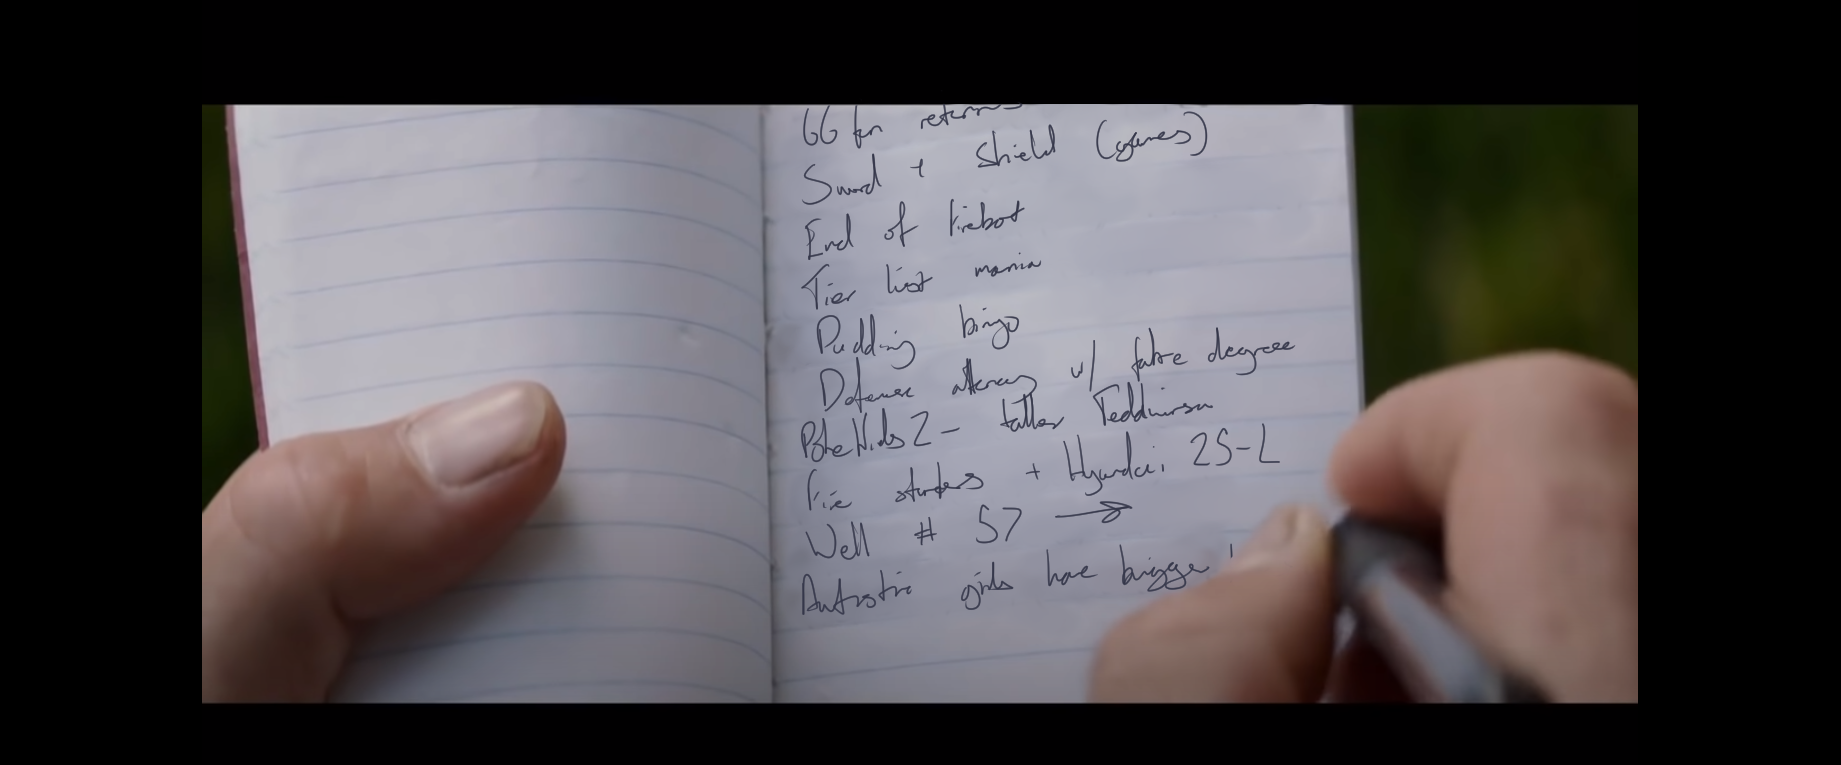 GG fan returns
Sword + Shield (games)
End of Firebot
Tier list mania
Pudding bingo
Defense attorney w/ fake degree
PokeKids 2 - taller Teddiursa
Fire starters + Hyundai 25-L
Well # 57 →
Autistic girls have bigge